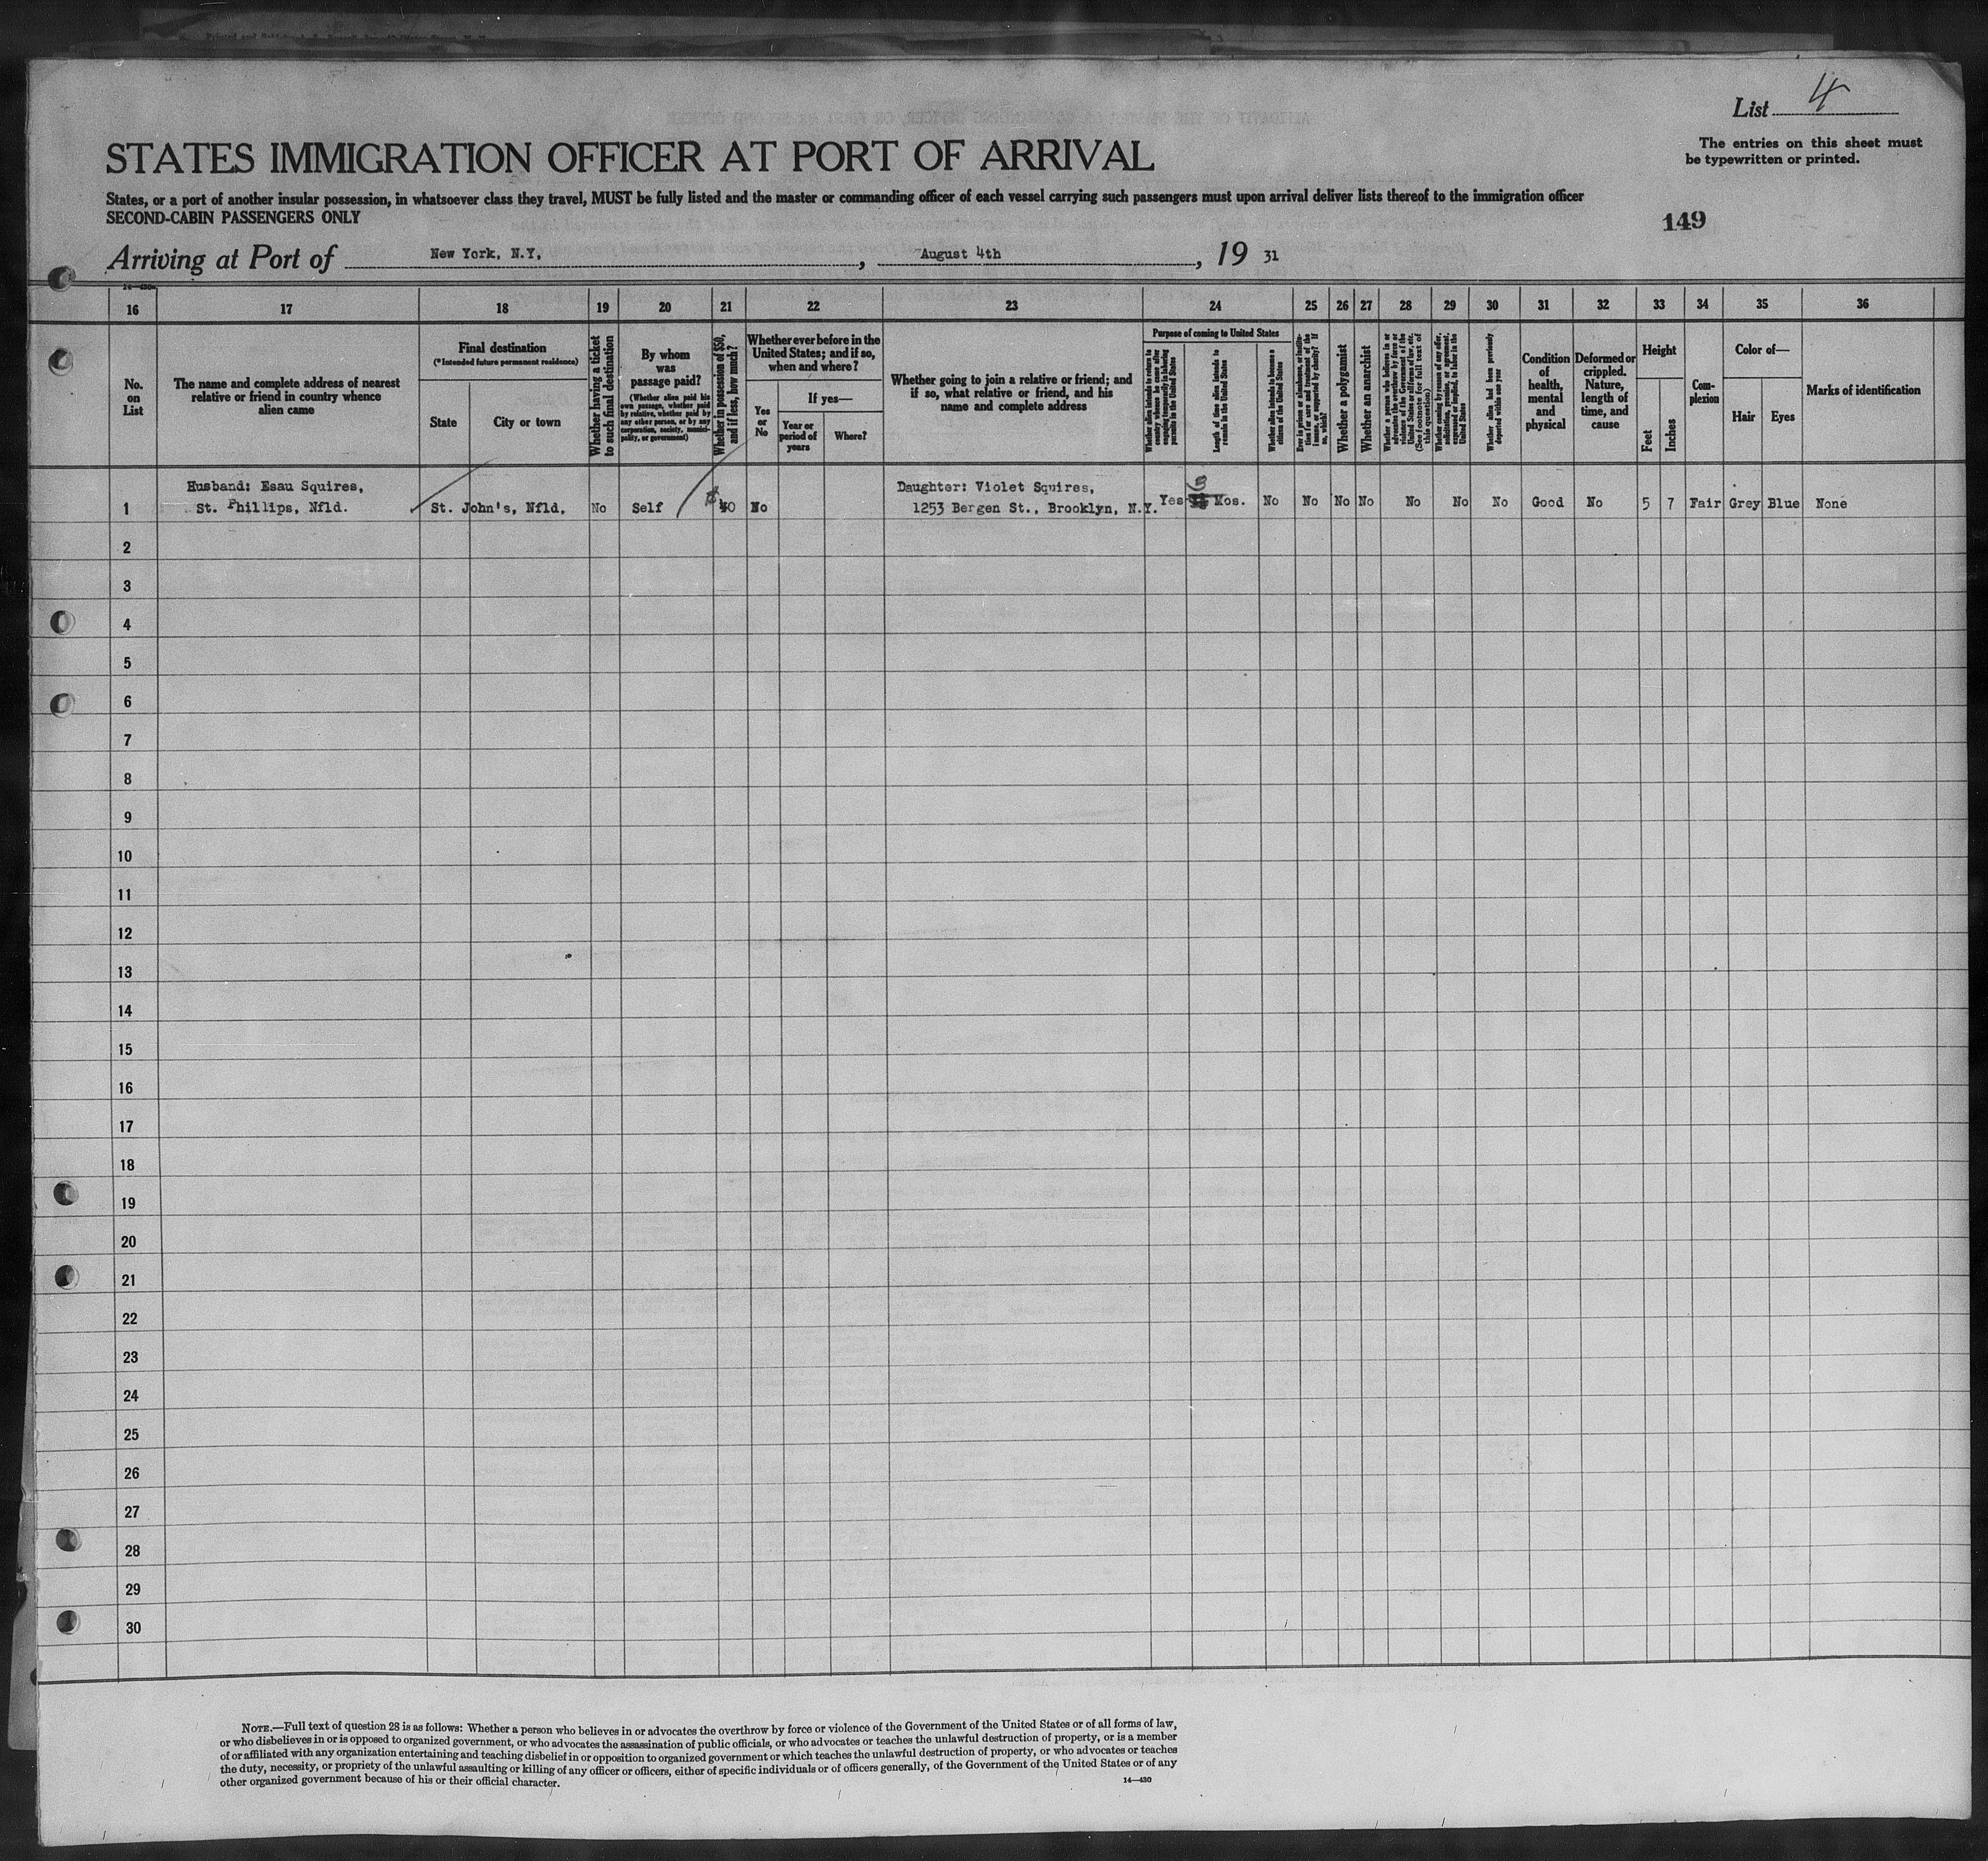 List 4
The entries on this sheet must
be typewritten or printed.
STATES IMMIGRATION OFFICER AT PORT OF ARRIVAL
States, or a port of another insular possession, in whatsoever class they travel, MUST be fully listed and the master or commanding officer of each vessel carrying such passengers must upon arrival deliver lists thereof to the immigration officer
SECOND-CABIN PASSENGERS ONLY
149
Arriving at Port of New York, N.Y., August 4th, 19 31
16 17 18 19 20 21 22 23 24 25 26 27 28 29 30 31 32 33 34 35 36
No.
on
List
The name and complete address of nearest
relative or friend in country whence
alien came
Final destination
(*Intended future permanent residence)
State
City or town
Whether having a ticket
to such final destination
By whom
was
passage paid?
(Whether alien paid his
own passage, whether paid
by relative, whether paid by
any other person, or by any
corporation, society, munici-
pality, or government)
Whether in possession of $50,
and if less, how much?
Whether ever before in the
United States; and if so,
when and where?
Yes
or
No
If yes—
Year or
period of
years
Where?
Whether going to join a relative or friend; and
if so, what relative or friend, and his
name and complete address
Purpose of coming to United States
Whether alien intends to return to
country whence he came after
engaging temporarily in laboring
pursuits in the United States
Length of time alien intends to
remain in the United States
Whether alien intends to become a
citizen of the United States
Ever in prison or almshouse, or institu-
tion for care and treatment of the
insane, or supported by charity? If
so, which?
Whether a polygamist
Whether an anarchist
Whether a person who believes in or
advocates the overthrow by force or
violence of the Government of the
United States or all forms of law, etc.
(See footnote for full text of
this question)
Whether coming by reason of any offer,
solicitation, promise, or agreement,
expressed or implied, to labor in the
United States
Whether alien had been previously
deported within one year
Condition
of
health,
mental
and
physical
Deformed or
crippled.
Nature,
length of
time, and
cause
Height
Feet
Inches
Com-
plexion
Color of—
Hair
Eyes
Marks of identification
Husband: Esau Squires,
St. Phillips, Nfld.
1 St. John's, Nfld, No Self $40 No
Daughter: Violet Squires,
1253 Bergen St., Brooklyn, N.Y.
Yes 3 Mos. No No No No No No No Good No 5 7 Fair Grey Blue None
2
3
4
5
6
7
8
9
10
11
12
13
14
15
16
17
18
19
20
21
22
23
24
25
26
27
28
29
30
NOTE.—Full text of question 28 is as follows: Whether a person who believes in or advocates the overthrow by force or violence of the Government of the United States or of all forms of law,
or who disbelieves in or is opposed to organized government, or who advocates the assassination of public officials, or who advocates or teaches the unlawful destruction of property, or is a member
of or affiliated with any organization entertaining and teaching disbelief in or opposition to organized government or which teaches the unlawful destruction of property, or who advocates or teaches
the duty, necessity, or propriety of the unlawful assaulting or killing of any officer or officers, either of specific individuals or of officers generally, of the Government of the United States or of any
other organized government because of his or their official character.
14—430